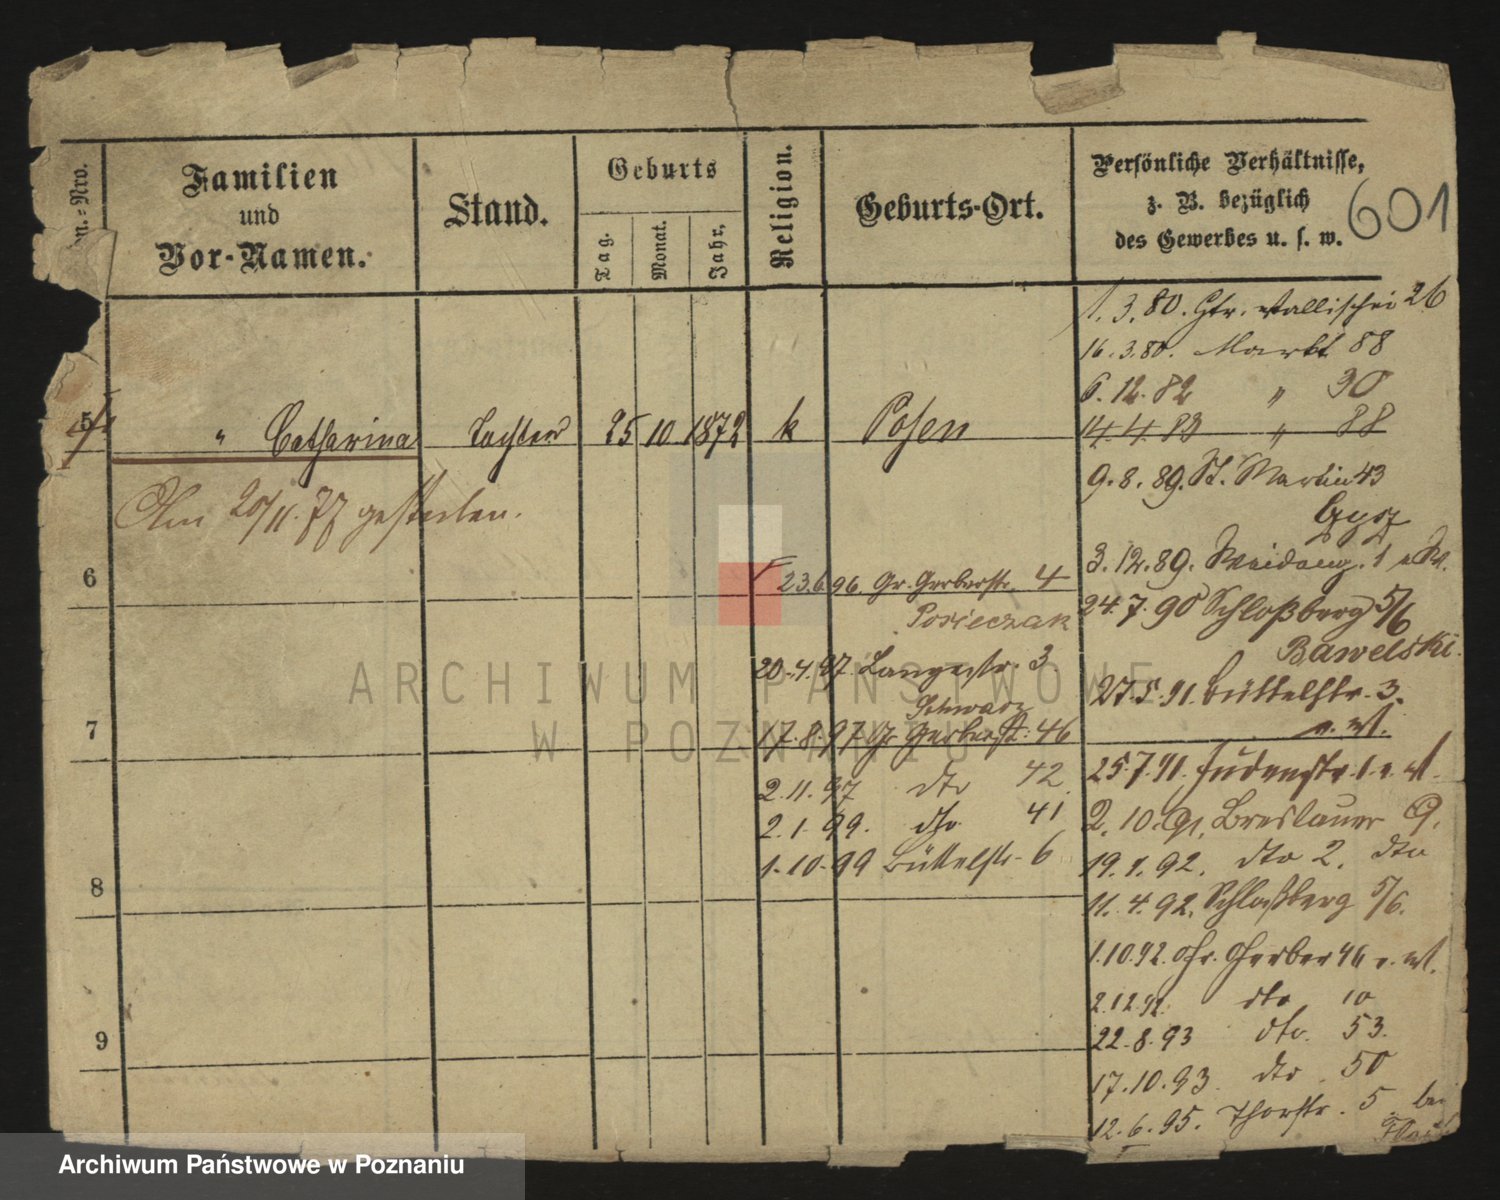 Familien
und
Vor-Namen.
Stand.
Geburts
Tag.
Monat.
Jahr.
Religion.
Geburts-Ort.
Persönliche Verhältnisse,
z. B. bezüglich
des Gewerbes u. s. w.
601
1.3.80. Gr. Wallischei 26
16.3.80. Markt 88
6.12.82 " 30
14.4.83 " 88
5 " Catharina Tochter 25 10 1872 k Posen
9.8.89. St. Martin 43
Am 20/11.77 gestorben.
3.12.89. 1
6
23.6.96. Gr. Gerberstr. 4
24.7.90 Schloßberg 5/6
Posieczak
Bawelski
20.4.97. Langestr. 3
27.5.91. Büttelstr. 3.
Schwarz
7
17.8.97 Gr Gerberstr. 46
25.7.91. Judenstr. 1
2.11.97 dto 42
2.10.91. Breslauer 9.
2.1.99. dto 41
19.1.92. dto 2. dto
1.10.99 Büttelstr. 6
8
11.4.92. Schloßberg 5/6.
1.10.92. Gr. Gerber 46
2.12.92. dto 10
22.8.93 dto. 53.
9
17.10.93. dto 50
12.6.95. Thorstr. 5. bei
ARCHIWUM PAŃSTWOWE
W POZNANIU
Archiwum Państwowe w Poznaniu